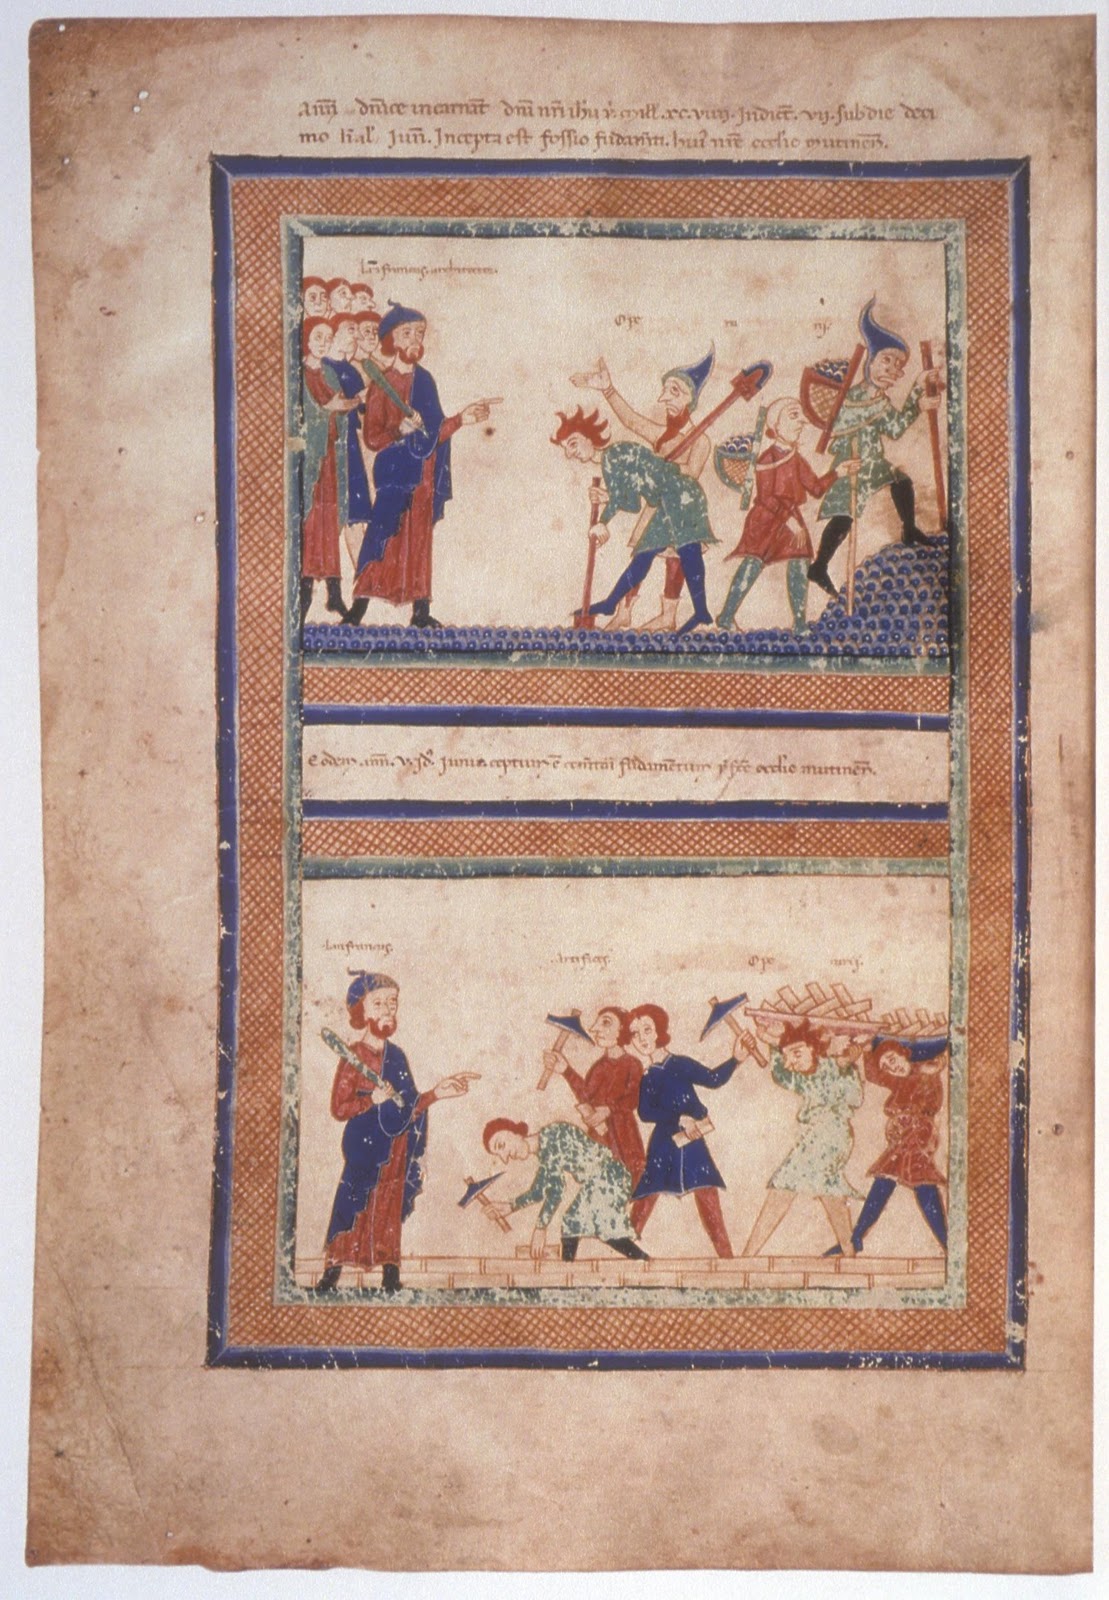 Anni dnice incarnat dni nri ihu x mill. xc. viiii. Indict. vii. sub die deci
mo kal iun. Incepta est fossio fudamti. hui nre ecclie mutinen.
Lanfrancus. architector.
Ope ra rij.
Eodem ann. v id iunii ceptum e fudamentum ecclie mutinen.
Lanfrancus.
Artifices.
Ope rarij.